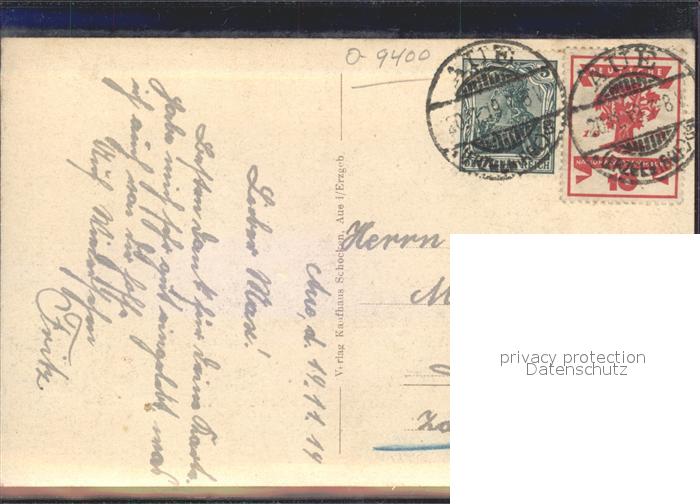 O-9400
AUE
AUE
(ERZGEBIRGE)
DEUTSCHE
5
REICH
NATIONAL
10
Aue, d. 19.11.19
Lieber Max!
Besten Dank für Deine Karte.
Habe mich sehr gut
ich auch von Dir hoffe
Auf Wiedersehen
Fritz.
Verlag Kaufhaus Schocken, Aue i/Erzgeb
Herrn
M
privacy protection
Datenschutz